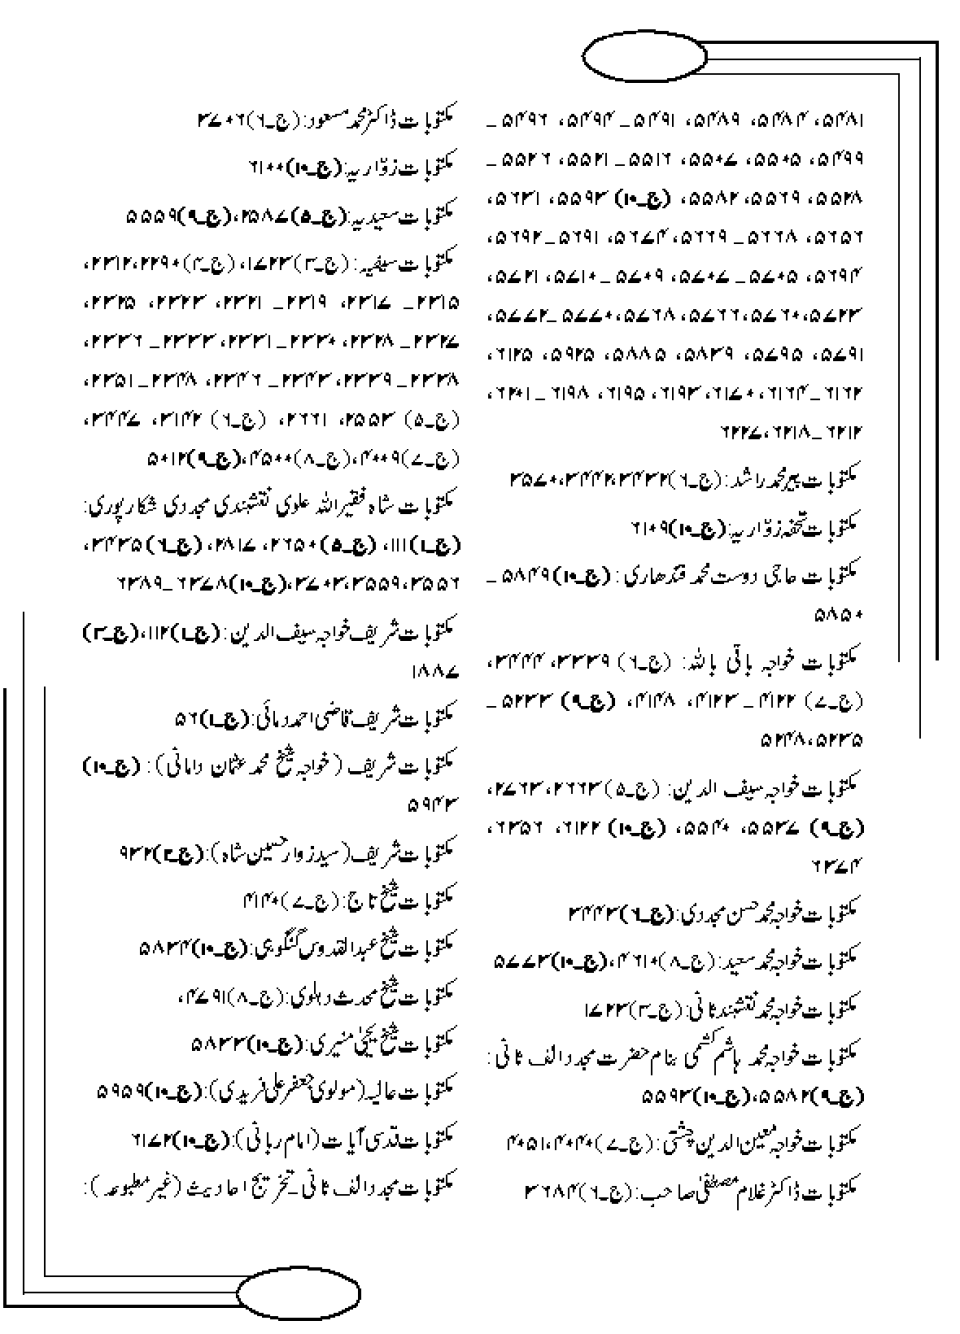 ۵۴۸۱، ۵۴۸۴، ۵۴۸۹، ۵۴۹۱۔ ۵۴۹۴، ۵۴۹۶ ۔
۵۴۹۹، ۵۵۰۵، ۵۵۰۷، ۵۵۱۶۔ ۵۵۲۱، ۵۵۲۶ ۔
۵۵۲۸، ۵۵۶۹، ۵۵۸۲، (ج۔۱۰) ۵۵۹۳، ۵۶۳۱،
۵۶۵۶، ۵۶۶۸۔ ۵۶۶۹، ۵۶۷۴، ۵۶۹۱۔ ۵۶۹۲،
۵۶۹۴، ۵۷۰۵۔ ۵۷۰۷، ۵۷۰۹۔ ۵۷۱۰، ۵۷۲۱،
۵۷۲۳، ۵۷۶۰، ۵۷۶۶، ۵۷۶۸، ۵۷۷۰۔ ۵۷۷۲،
۵۷۹۱، ۵۷۹۵، ۵۸۳۹، ۵۸۸۵، ۵۹۲۵، ۶۱۲۵،
۶۱۶۲۔ ۶۱۶۴، ۶۱۷۰، ۶۱۹۳، ۶۱۹۵، ۶۱۹۸ ۔ ۶۲۰۱،
۶۲۱۲۔ ۶۲۱۸، ۶۲۲۷
مکتوبات پیر محمد راشد: (ج۔۶) ۳۴۳۲، ۳۴۴۲، ۳۵۷۰
مکتوبات تحفہ زوّاریہ: (ج۔۱۰) ۶۱۰۹
مکتوبات حاجی دوست محمد قندھاری : (ج۔۱۰) ۵۸۴۹ ۔
۵۸۵۰
مکتوبات خواجہ باقی باللہ: (ج۔۶) ۳۳۳۹، ۳۴۴۴،
(ج۔۷) ۴۱۲۲ ۔ ۴۱۲۳، ۴۱۴۸، (ج۔۹) ۵۲۳۳ ۔
۵۲۳۵، ۵۲۴۸
مکتوبات خواجہ سیف الدین: (ج۔۵) ۲۶۶۳، ۲۷۶۳،
(ج۔۹) ۵۵۳۷، ۵۵۴۰، (ج۔۱۰) ۶۱۲۲، ۶۳۵۶،
۶۳۷۴
مکتوبات خواجہ محمد حسن مجددی: (ج۔۶) ۳۴۴۳
مکتوبات خواجہ محمد سعید: (ج۔۸) ۴۶۱۰، (ج۔۱۰) ۵۷۷۳
مکتوبات خواجہ محمد نقشبند ثانی: (ج۔۳) ۱۷۲۳
مکتوبات خواجہ محمد ہاشم کشمی بنام حضرت مجدد الف ثانی :
(ج۔۹) ۵۵۸۲، (ج۔۱۰) ۵۵۹۳
مکتوبات خواجہ معین الدین چشتی: (ج۔۷) ۴۰۴۰، ۴۰۵۱
مکتوبات ڈاکٹر غلام مصطفیٰ صاحب: (ج۔۶) ۳۶۸۴
مکتوبات ڈاکٹر محمد مسعود: (ج۔۶) ۳۷۰۶
مکتوبات زوّاریہ: (ج۔۱۰) ۶۱۰۰
مکتوبات سعیدیہ: (ج۔۵) ۲۵۸۷، (ج۔۹) ۵۵۵۹
مکتوبات سیفیہ: (ج۔۳) ۱۷۲۳، (ج۔۴) ۲۲۹۰، ۲۳۱۲،
۲۳۱۵ ۔ ۲۳۱۷، ۲۳۱۹ ۔ ۲۳۲۱، ۲۳۲۳، ۲۳۲۵،
۲۳۲۷ ۔ ۲۳۲۸، ۲۳۳۰ ۔ ۲۳۳۱، ۲۳۳۳ ۔ ۲۳۳۶،
۲۳۳۸ ۔ ۲۳۳۹، ۲۳۴۳ ۔ ۲۳۴۶، ۲۳۴۸ ۔ ۲۳۵۱،
(ج۔۵) ۲۵۵۳، ۲۶۶۱، (ج۔۶) ۳۱۴۲، ۳۴۴۷،
(ج۔۷) ۴۰۰۹، (ج۔۸) ۴۵۰۰، (ج۔۹) ۵۰۱۲
مکتوبات شاہ فقیر اللہ علوی نقشبندی مجددی شکارپوری:
(ج۔۱) ۱۱۱، (ج۔۵) ۲۶۵۰، ۲۸۱۷، (ج۔۶) ۳۴۳۵،
۳۵۵۶، ۳۵۵۹، ۳۷۰۳، (ج۔۱۰) ۶۳۷۸ ۔ ۶۳۸۹
مکتوبات شریف خواجہ سیف الدین: (ج۔۱) ۱۱۲، (ج۔۳)
۱۸۸۷
مکتوبات شریف قاضی احمد دمائی: (ج۔۱) ۵۶
مکتوبات شریف (خواجہ شیخ محمد عثمان دامانی): (ج۔۱۰)
۵۹۴۳
مکتوبات شریف (سید زوار حسین شاہ): (ج۔۲) ۹۳۲
مکتوبات شیخ تاج: (ج۔۷) ۴۱۴۰
مکتوبات شیخ عبدالقدوس گنگوہی: (ج۔۱۰) ۵۸۳۴
مکتوبات شیخ محدث دہلوی: (ج۔۸) ۴۷۹۱،
مکتوبات شیخ یحییٰ منیری: (ج۔۱۰) ۵۸۳۳
مکتوبات عالیہ (مولوی جعفر علی فریدی): (ج۔۱۰) ۵۹۵۹
مکتوبات قدسی آیات (امام ربانی): (ج۔۱۰) ۶۱۷۲
مکتوبات مجدد الف ثانی۔ تخریج احادیث (غیر مطبوعہ):